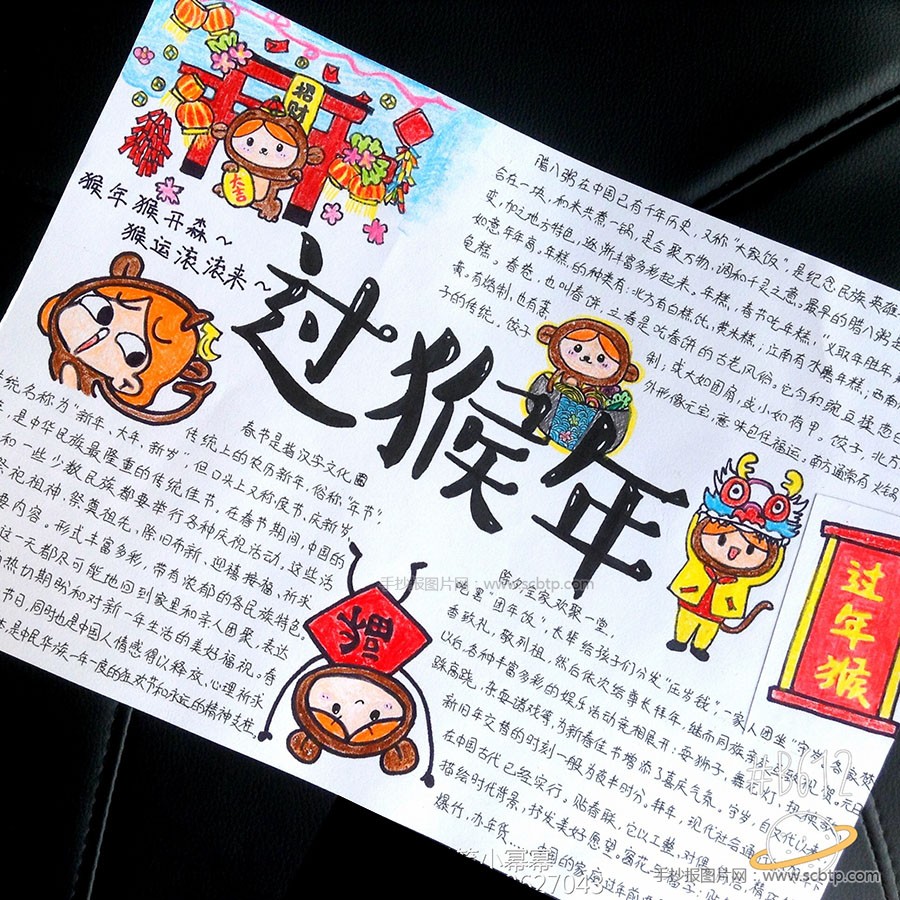 招财
大吉
猴年猴开森~
猴运滚滚来~
过猴年
腊八粥在中国已有千年历史,又称"大家饭"是纪念民族英雄
合在一块,和米共煮一锅,是合聚万物、调和千灵之意。最早的腊八粥是
变,加之地方特色,逐渐丰富多彩起来。年糕,春节吃年糕,"义取年胜年,
如意年年高,年糕的种类有:北方有白糕饦、黄米糕;江南有水磨年糕;西南
龟糕。春卷,也叫春饼,立春是吃春饼的古老风俗。它匀和豌豆揉
黄。有烙制,也有蒸制;或大如团扇,或小如荷甲。饺子,北方
子的传统,饺子外形像元宝,意味包住福运。南方通常有火锅
春节是指汉字文化圈
传统上的农历新年,俗称"年节",
统名称为新年、大年、新岁,但口头上又称度节、庆新岁、
是中华民族最隆重的传统佳节。在春节期间,中国的
和一些少数民族都要举行各种庆祝活动,这些活
祭祝祖神、祭奠祖先、除旧布新、迎禧接福、祈求
要内容。形式丰富多彩,带有浓郁的各民族特色。
这一天都尽可能地回到家里和亲人团聚,表达
热切期盼和对新一年生活的美好福祝。春
节日,同时也是中国人情感得以释放、心理祈求
是中民华族一年度的狂欢节和永远的精神支柱。
福
过年猴
除夕,全家欢聚一堂,
吃罢"团年饭",长辈给孩子们分发"压岁钱",一家人团坐"守岁
香致礼,敬列祖,然后依次给尊长拜年,继而同族亲
以后,各种丰富多彩的娱乐活动竞相展开:耍狮子、舞
跷高跷、杂耍游戏等,为新春佳节增添了喜庆气氛。守岁,
新旧年交替的时刻一般为夜半时分。拜年,现代社会通
在中国古代已经实行。贴春联,它以工整、对偶
描绘时代背景,抒发美好愿望。窗花与
爆竹,办年货……中国的家庭过年前
手抄报图片网:www.scbtp.com
#B612
小幂幂
27043
手抄报图片网:www.scbtp.com